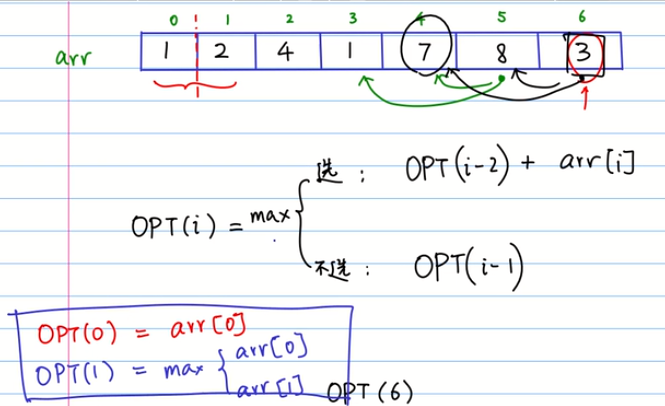 0 1 2 3 4 5 6
arr 1 2 4 1 7 8 3
选： OPT(i-2) + arr[i]
OPT(i) = max
不选： OPT(i-1)
OPT(0) = arr[0]
OPT(1) = max { arr[0]
arr[1]
OPT(6)